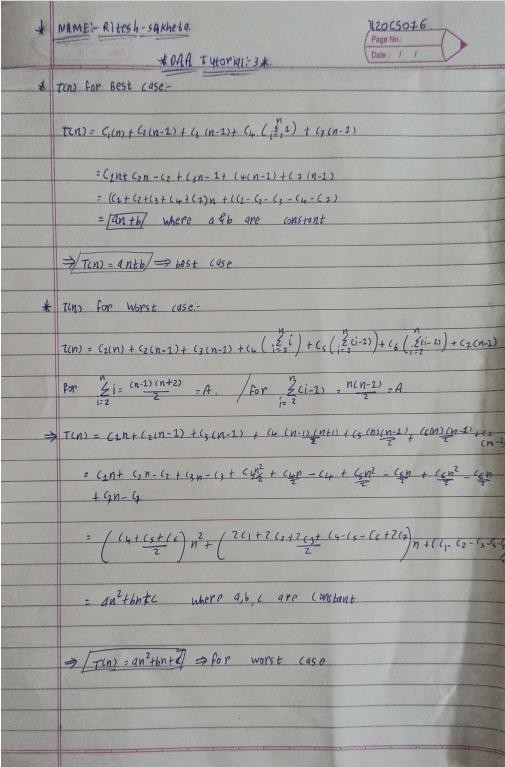 * NAME:- Ritesh-sakhela U20CS076
Page No.:
Date: / /
* DAA Tutorial:-3 *
* T(n) for Best case:-
T(n) = C1(n) + C2(n-1) + C3(n-1) + C4 (Σ i=2 n 1) + C7(n-1)
= C1n + C2n - C2 + C3n - 1 + C4(n-1) + C7(n-1)
= (C1 + C2 + C3 + C4 + C7)n + (C1 - C2 - C3 - C4 - C7)
= an+b where a & b are constant
⇒ T(n) = an+b ⇒ best case
* T(n) for worst case:-
T(n) = C1(n) + C2(n-1) + C3(n-1) + C4 (Σ i=2 n i) + C5 (Σ i=2 n (i-1)) + C6 (Σ i=2 n (i-1)) + C7(n-1)
For Σ i=2 n i = (n-1)(n+2)/2 = A. / for Σ i=2 n (i-1) = n(n-1)/2 = A.
⇒ T(n) = C1n + C2(n-1) + C3(n-1) + C4 (n-1)(n+1)/2 + C5(n)(n-1)/2 + C6(n)(n-1)/2 + C7
= C1n + C2n - C2 + C3n - C3 + C4n²/2 + C4n/2 - C4 + C5n²/2 - C5n/2 + C6n²/2 - C6n/2
+ C7n - C7
= ((C4+C5+C6)/2) n² + ((2C1+2C2+2C3+C4-C5-C6+2C7)/2) n + (C1-C2-C3-C4-
= an²+bn+c where a,b,c are constant
⇒ T(n) = an²+bn+c ⇒ for worst case